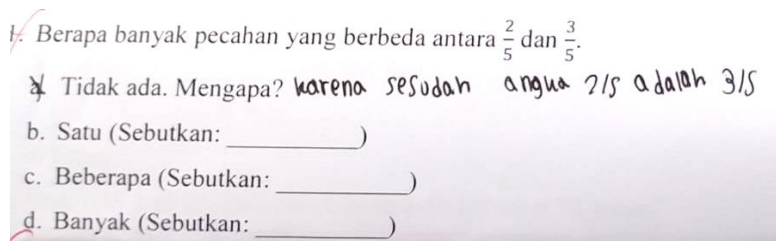 1. Berapa banyak pecahan yang berbeda antara 2/5 dan 3/5.
a. Tidak ada. Mengapa? karena sesudah angua 2/5 adalah 3/5
b. Satu (Sebutkan: __________)
c. Beberapa (Sebutkan: __________)
d. Banyak (Sebutkan: __________)